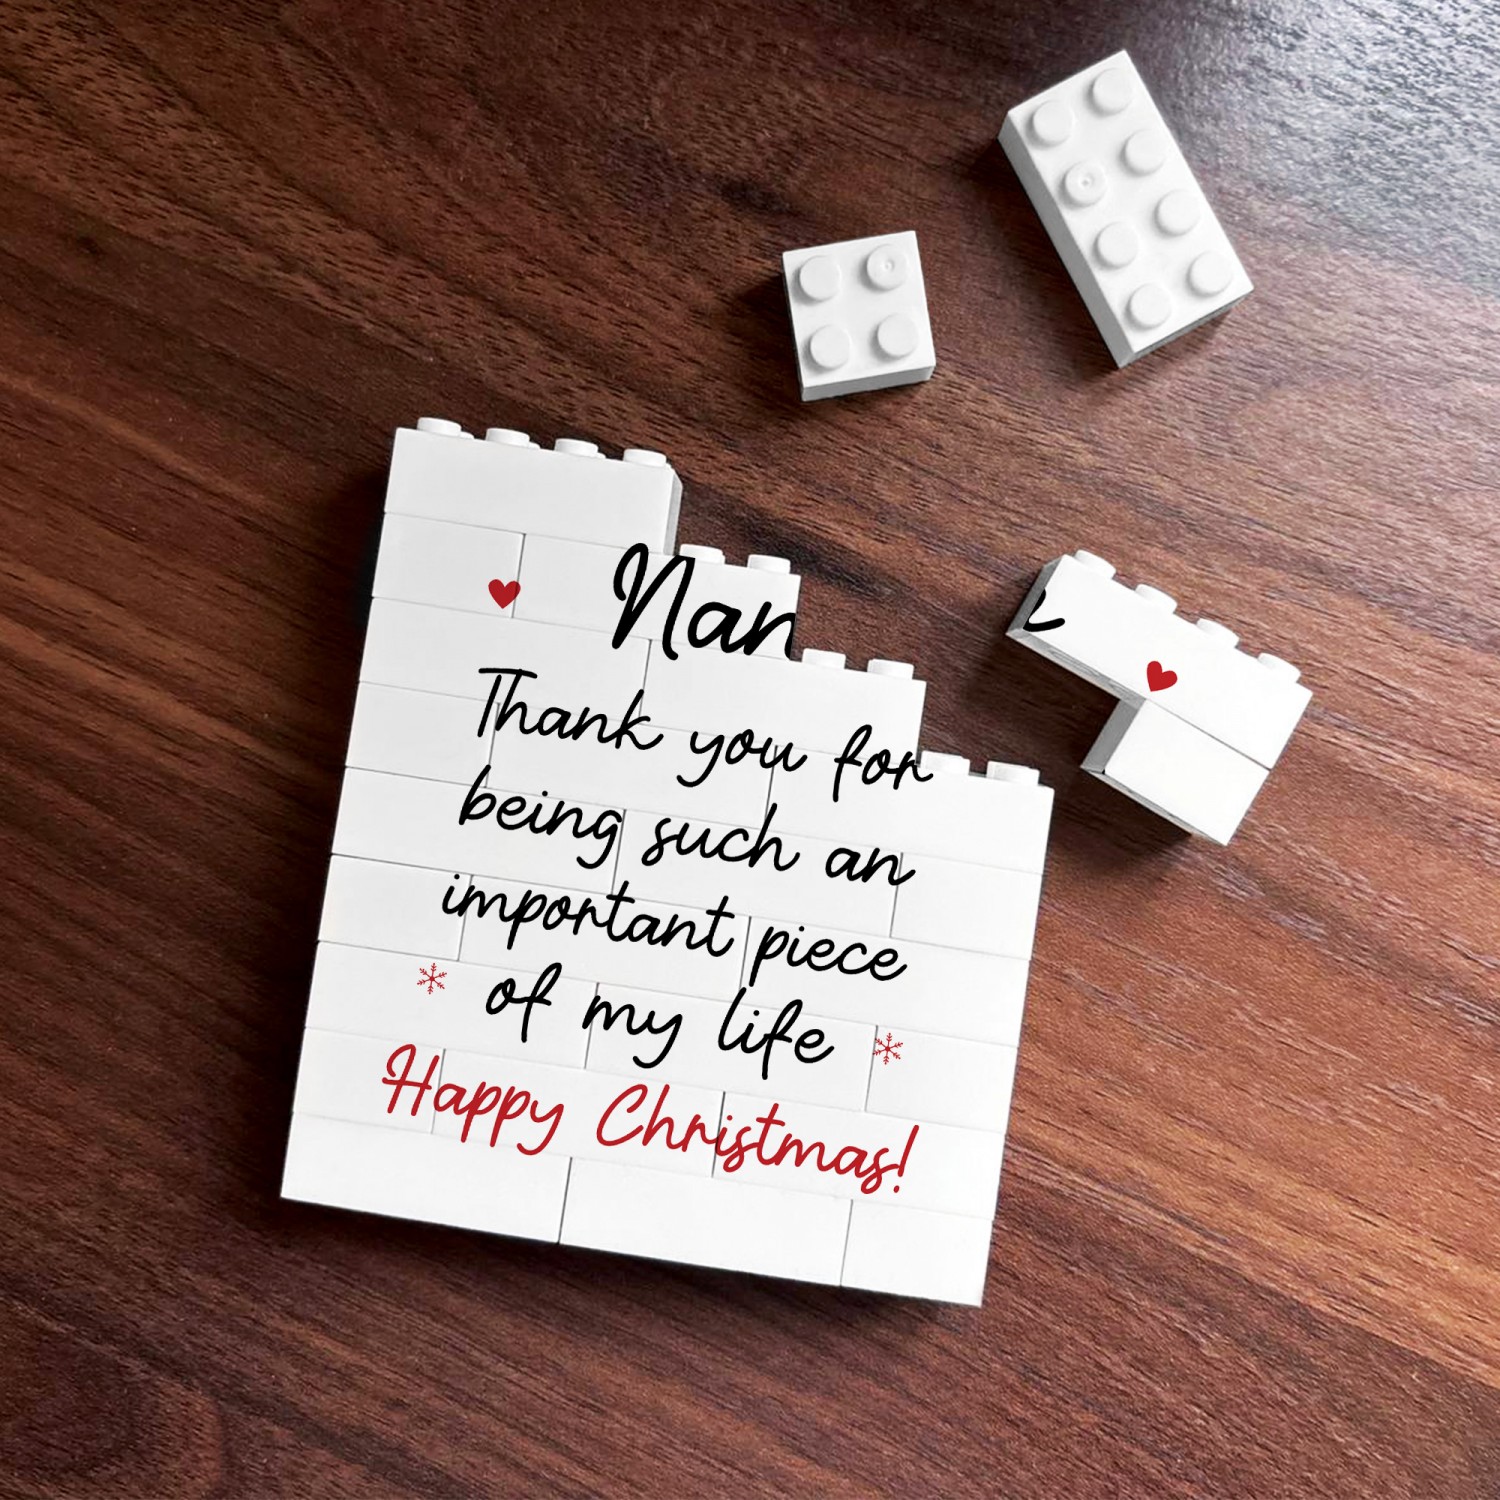 Nam
Thank you for
being such an
important piece
of my life
Happy Christmas!